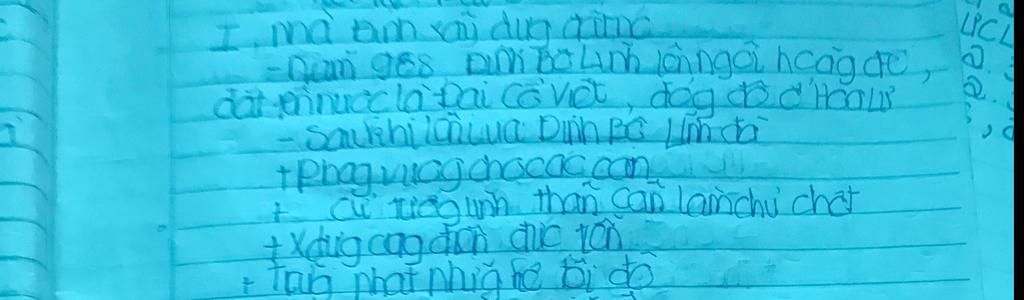 I. Nhà Đinh xây dựg
- Năm 968 Đinh Bộ Lĩnh lên ngôi hoàg đế,
đặt tên nước là Đại Cồ Việt, đóg đô ở Hoa Lư
- Sau khi lên vua Đinh Bộ Lĩnh đã
+ Phog vươg cho các con
+ Cử tướg lĩnh thân cận làm chủ chốt
+ Xdựg cug điện đúc tiền
+ phạt